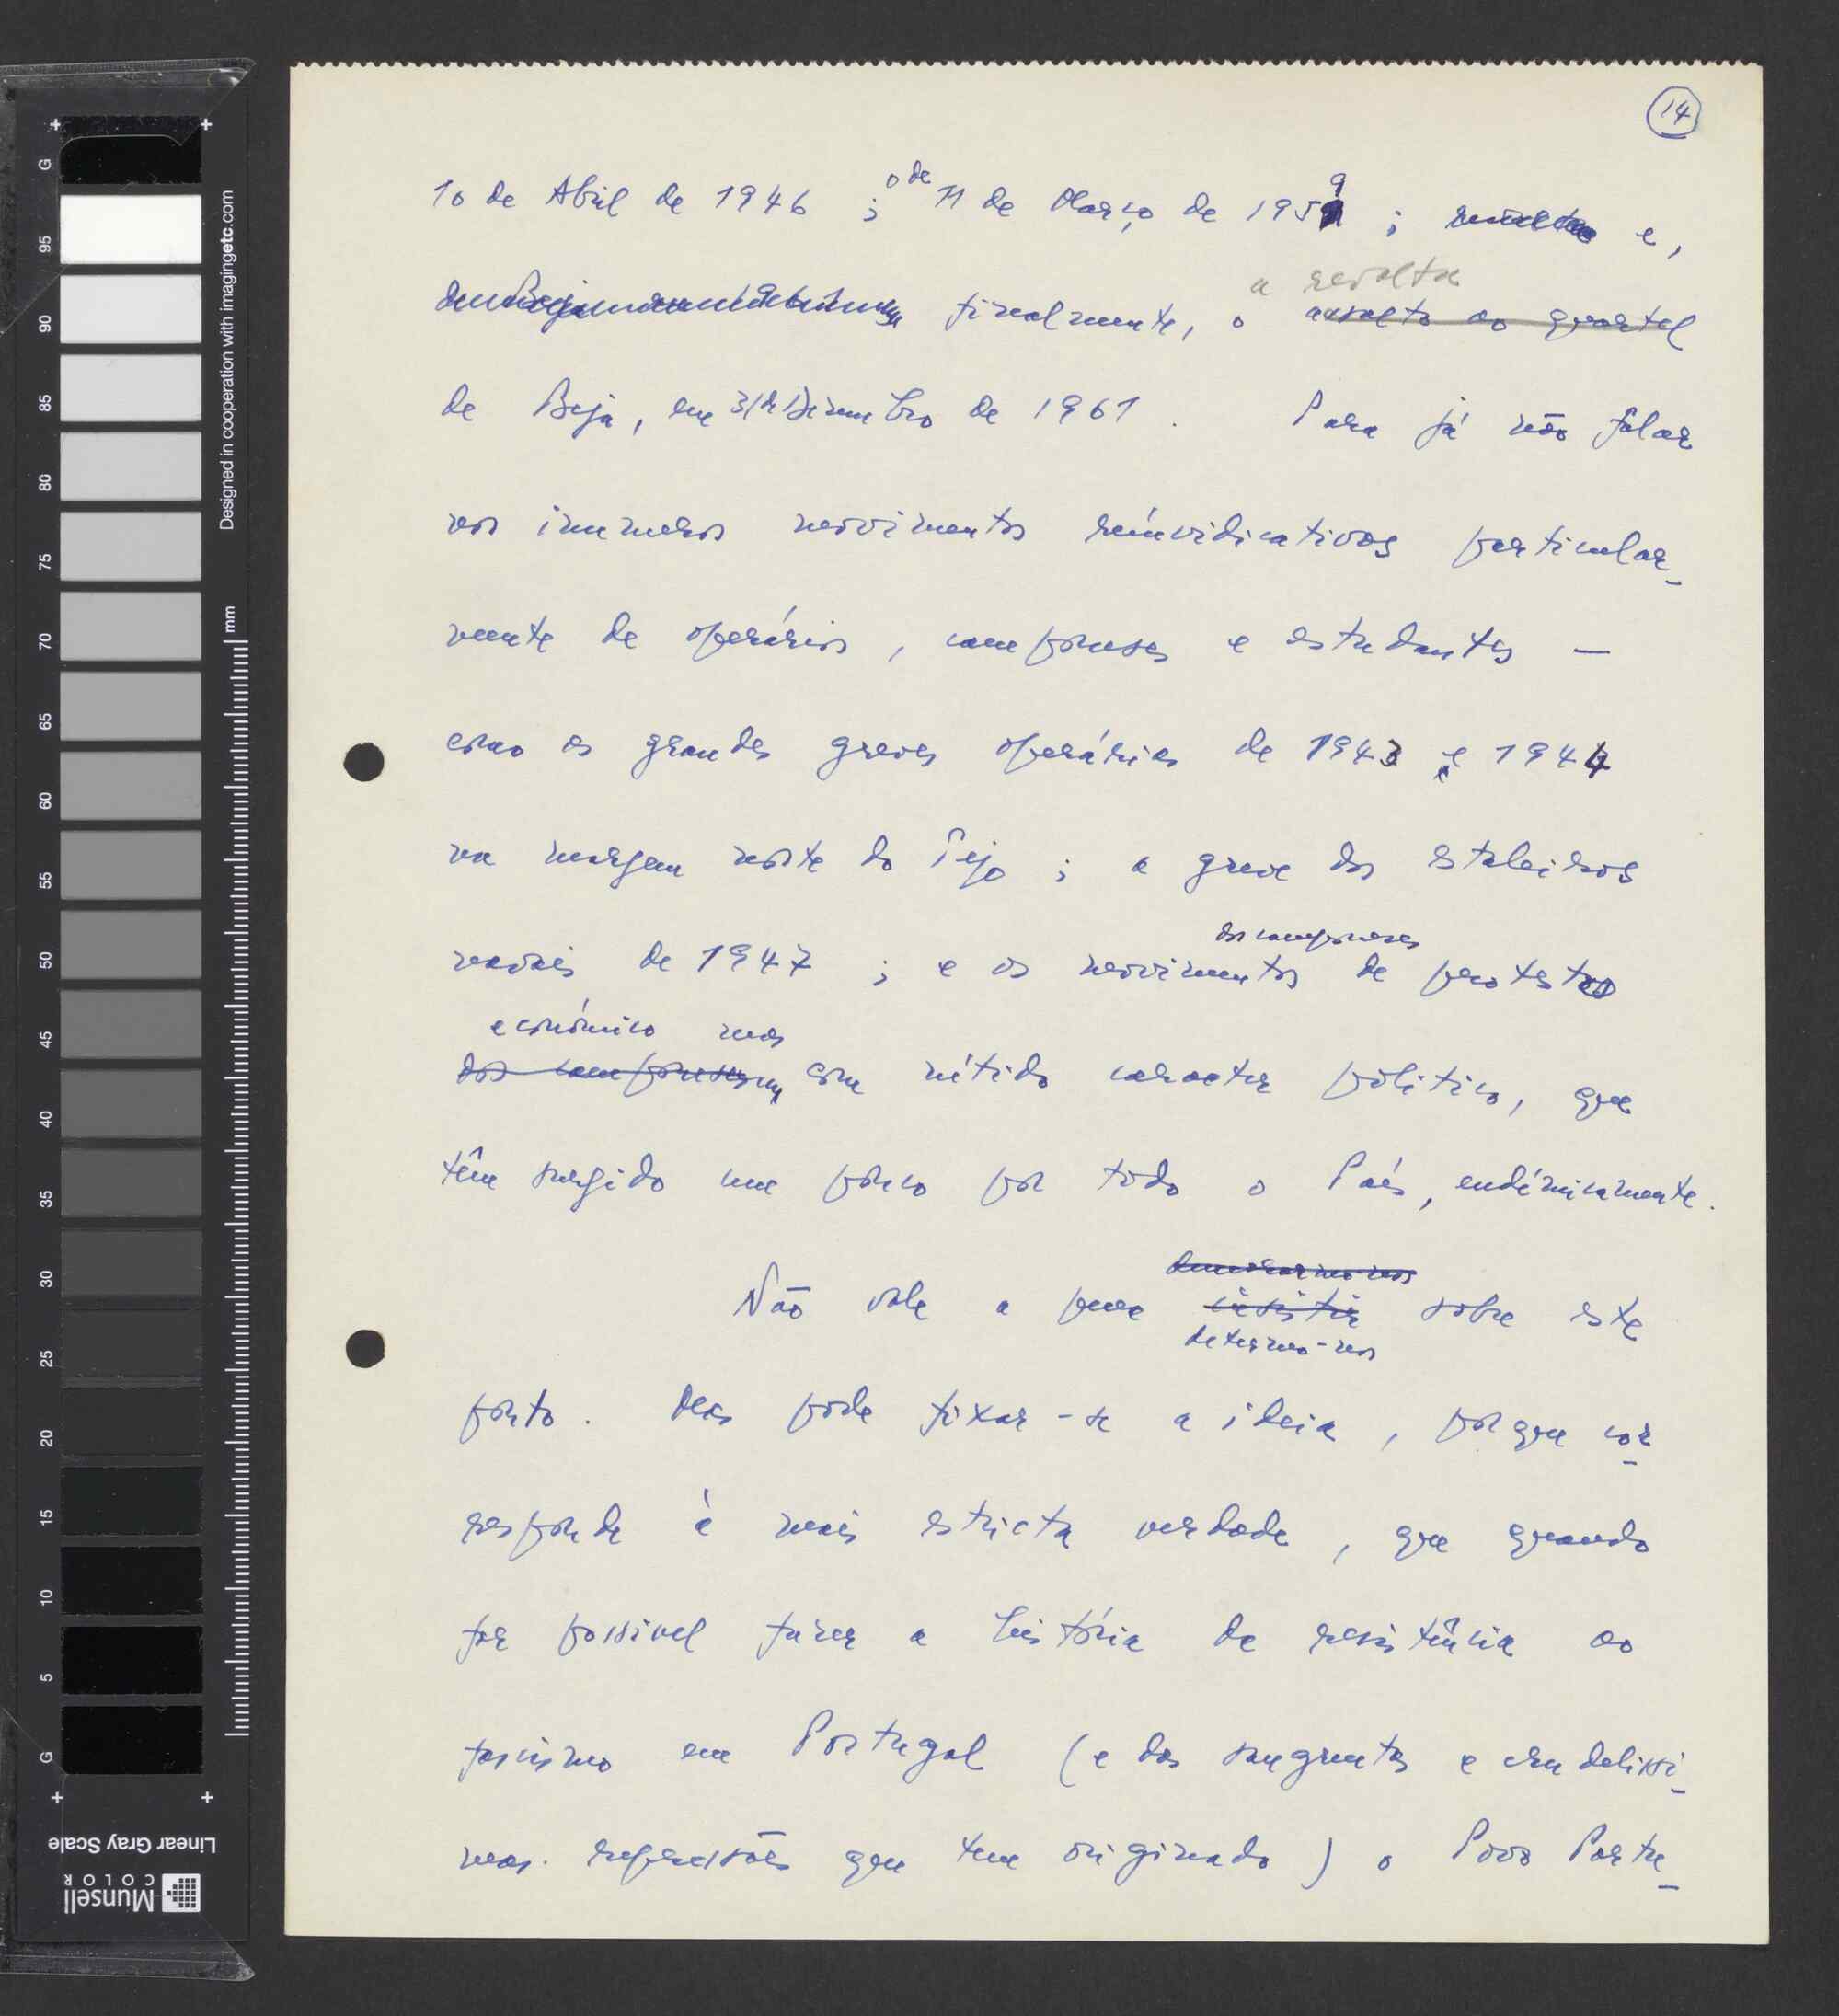 14
10 de Abril de 1946 ; o de 11 de Março de 1959 ; e,
finalmente, o assalto ao quartel
a revolta
de Beja, em 31 de Dezembro de 1961. Para já não falar
nos inumeros movimentos reinvidicativos particular-
mente de operários, camponeses e estudantes —
como as grandes greves operárias de 1943 e 1944
na margem norte do Tejo ; a greve dos estaleiros
dos camponeses
navais de 1947 ; e os movimentos de protesto
económico mas
dos camponeses, com nítido caracter político, que
têm surgido um pouco por todo o País, endémicamente.
demorarmo-nos
Não vale a pena insistir sobre este
determo-nos
ponto. Mas pode fixar-se a ideia, porque cor-
responde à mais estricta verdade, que quando
for possivel fazer a história da resistência ao
fascismo em Portugal (e das sangrentas e crudelissi-
mas repressões que tem originado) o Povo Portu-
Designed in cooperation with imagingetc.com
mm
G 95 90 85 80 75 70 65 60 55 50 45 40 35 30 25 20 15 10 5 G
Linear Gray Scale
Munsell
COLOR